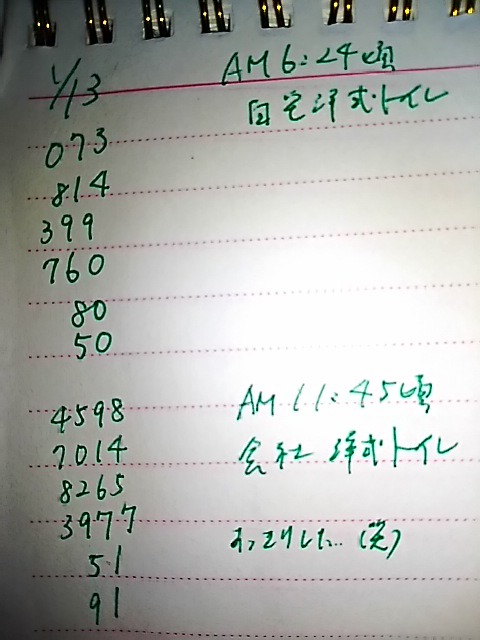 1/13 AM 6:24頃
自宅洋式トイレ
073
814
399
760
80
50
4598 AM 11:45頃
7014 会社 洋式トイレ
8265
3977 すっきりした… (笑)
51
91